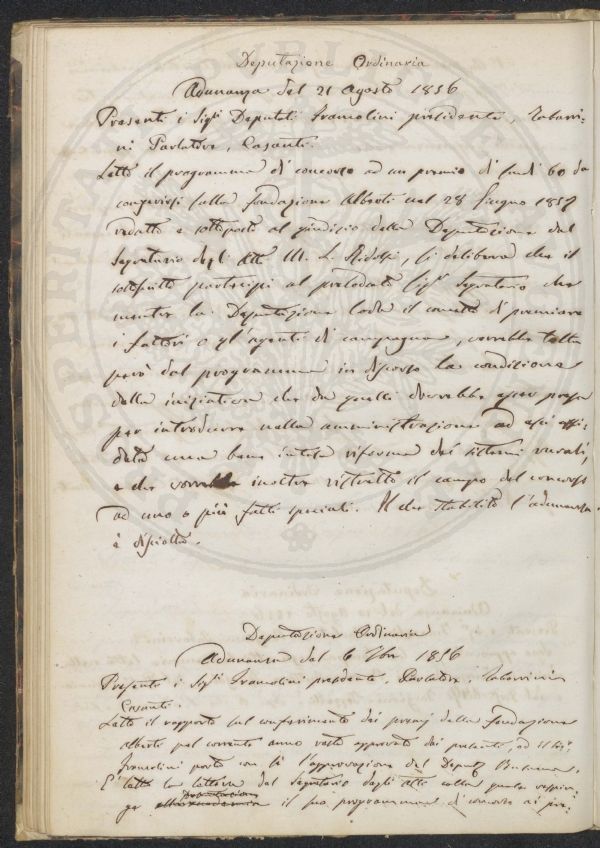 Deputazione Ordinaria
Adunanza del 21 Agosto 1856
Presenti i Sigri Deputati Tramolini presidente, Tabarri-
ni Parlatore, Casanti.
Letto il programma di concorso ad un premio di scudi 60 da
conferirsi sulla fondazione Alberti nel 28 Giugno 1857
redatto e sottoposto al giudizio della Deputazione dal
Segretario degli Atti M. L. Ridolfi, si delibera che il
sottoscritto partecipi al prelodato Sigr Segretario che
mentre la Deputazione loda il concetto di premiare
i fattori o gl'agenti di campagna, vorrebbe tolta
però dal programma in discorso la condizione
della iniziativa che da quelli dovrebbe esser presa
per introdurre nella amministrazione ad essi affi-
data una bene intesa riforma dei sistemi rurali,
e che vorrebbe inoltre ristretto il campo del concorso
ad uno o più fatti speciali. Il che stabilito l'adunanza
è disciolta.
Deputazione Ordinaria
Adunanza del 6 7bre 1856
Presenti i Sigri Tramolini presidente, Parlatore, Tabarrini
Casanti.
Letto il rapporto sul conferimento dei premj della fondazione
Alberti pel corrente anno resta approvato dai presenti, ed il Sigr
Tramolini porta con se l'approvazione del Deputo Busacca.
E' letta la lettera del Segretario degli atti colla quale respin-
ge Deputazione
alla accademia il suo programma di concorso ai pre-